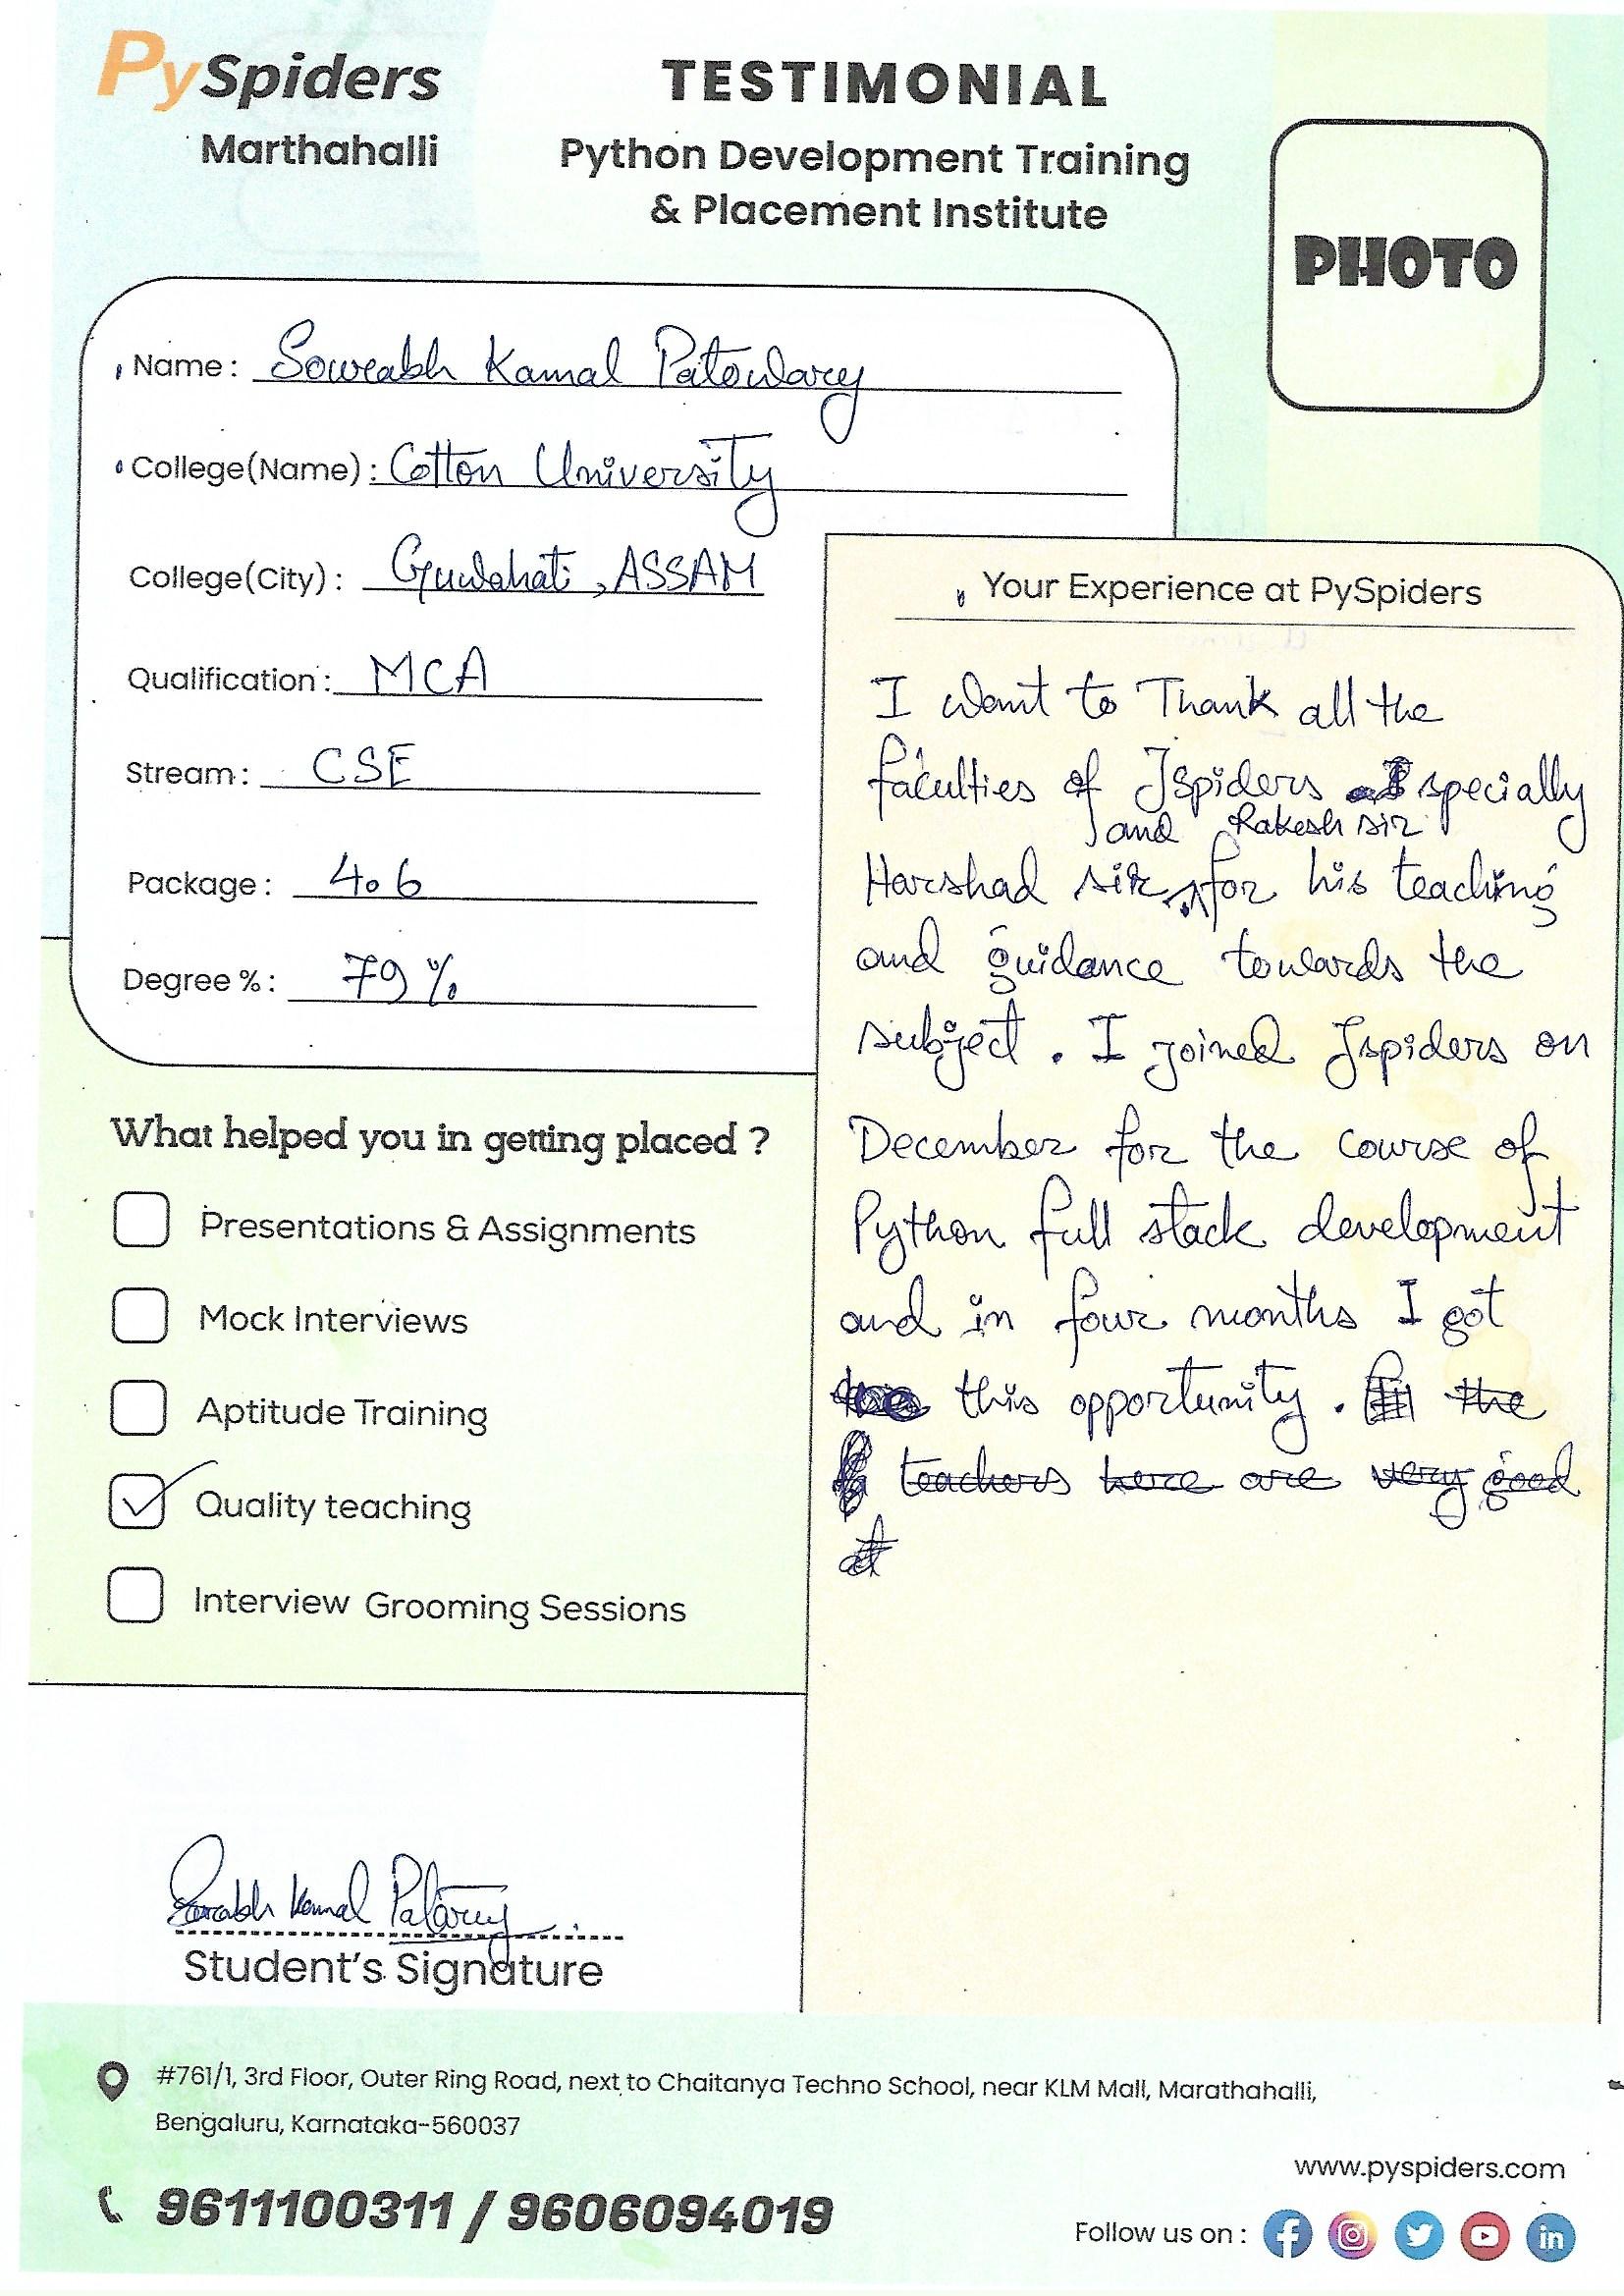 PySpiders
Marthahalli
TESTIMONIAL
Python Development Training
& Placement Institute
PHOTO
Name: Sourabh Kamal Patowary
College(Name): Cotton University
College(City): Guwahati, ASSAM
Qualification: MCA
Stream: CSE
Package: 4.6
Degree %: 79%
What helped you in getting placed ?
Presentations & Assignments
Mock Interviews
Aptitude Training
Quality teaching
Interview Grooming Sessions
Your Experience at PySpiders
I want to Thank all the
faculties of Jspiders specially
and Rakesh sir
Harshad sir for his teaching
and guidance towards the
subject. I joined Jspiders on
December for the course of
Python full stack development
and in four months I got
this opportunity. the
teachers here are very good
at
Sourabh Kamal Patowary
Student's Signature
#761/1, 3rd Floor, Outer Ring Road, next to Chaitanya Techno School, near KLM Mall, Marathahalli,
Bengaluru, Karnataka-560037
9611100311 / 9606094019
www.pyspiders.com
Follow us on :